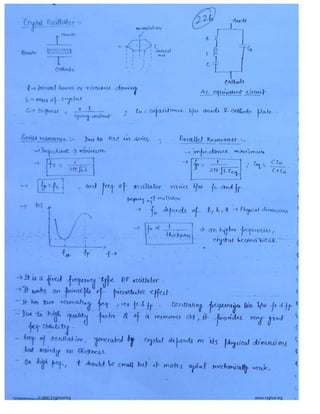 Crystal Oscillator :-
226
Anode
Anode
Cathode
Cathode
AC equivalent circuit
R → internal losses or viscous
L → mass of crystal
C → stiffness, 1 / spring constant ; Co = capacitance b/w anode & cathode plate.
Series resonance :- Due to RLC in series ; Parallel Resonance :-
→ Impedance → minimum → impedance maximum
→ fs = 1 / 2π√LC → fp = 1 / 2π√LCeq ; Ceq = CCo / C+Co
→ fp > fs , and freq of oscillator varies b/w fs and fp.
→ |Z|
fs fp f→
→ fo depends of l, b, t → Physical dimensions
→ fo ∝ 1 / thickness → on higher frequencies, crystal becomes weak.
→ It is a fixed frequency type RF oscillator.
→ It works on principle of piezoelectric effect.
- It has two resonating freq, i.e. fs & fp. Oscillating frequency is b/w fs & fp
- Due to high quality factor Q of a resonance ckt, it provides very good freq stability.
- Freq of oscillation, generated by crystal depends on its physical dimensions but mainly on thickness.
- On high freq., t should be small but it makes crystal mechanically weak.
Engineering
www.raghul.org